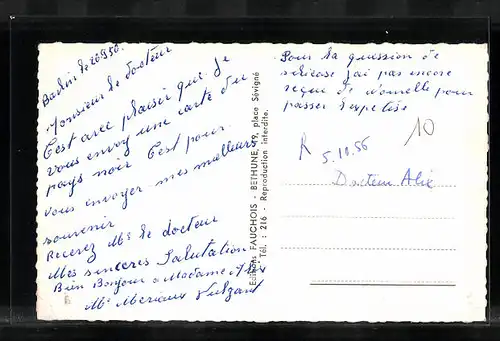 Barlin le 20 9 56.
Monsieur le docteur
C'est avec plaisir que je
vous envoy une carte du
pays noir C'est pour
vous envoyer mes meilleurs
souvenir
Recevez Mr le docteur
Mes sinceres Salutation
Bien Bonjour a Madame Alix
Mr Meriaux Vulgant
Editions FAUCHOIS - BETHUNE, 79, place Sévigné
Tél. : 216 - Reproduction interdite.
Pour la question de
silicose j'ai pas encore
reçue de nouvelle pour
passer l'expertise
10
R
5.10.56
Docteur Alix